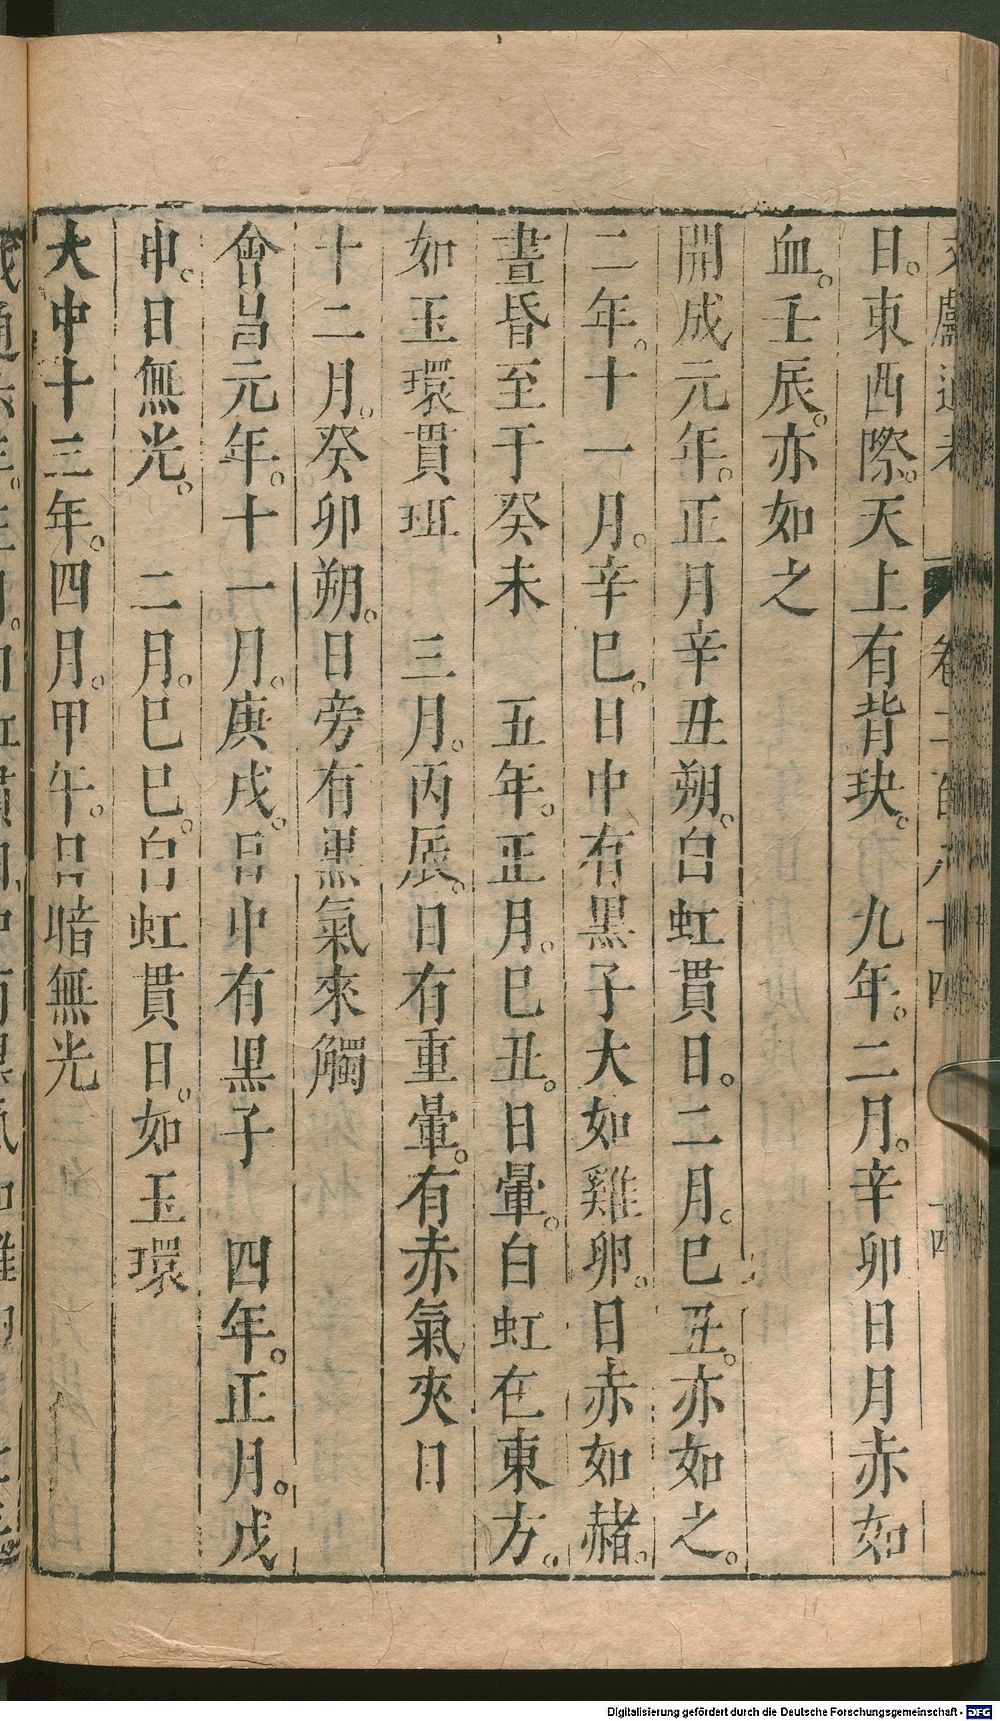 文獻通考 卷二百八十四 十四
日。東西際。天上有背玦。 九年。二月。辛卯日月赤如
血。壬辰。亦如之
開成元年。正月辛丑朔。白虹貫日。二月。巳丑。亦如之。
二年。十一月。辛巳。日中有黑子大如雞卵。日赤如赭。
晝昏至于癸未 五年。正月。巳丑。日暈。白虹在東方。
如玉環貫珥 三月。丙辰。日有重暈。有赤氣夾日
十二月。癸卯朔。日旁有黑氣來觸
會昌元年。十一月。庚戌。日中有黑子 四年。正月。戊
申。日無光。 二月。巳巳。白虹貫日。如玉環
大中十三年。四月。甲午。日暗無光
Digitalisierung gefördert durch die Deutsche Forschungsgemeinschaft - DFG